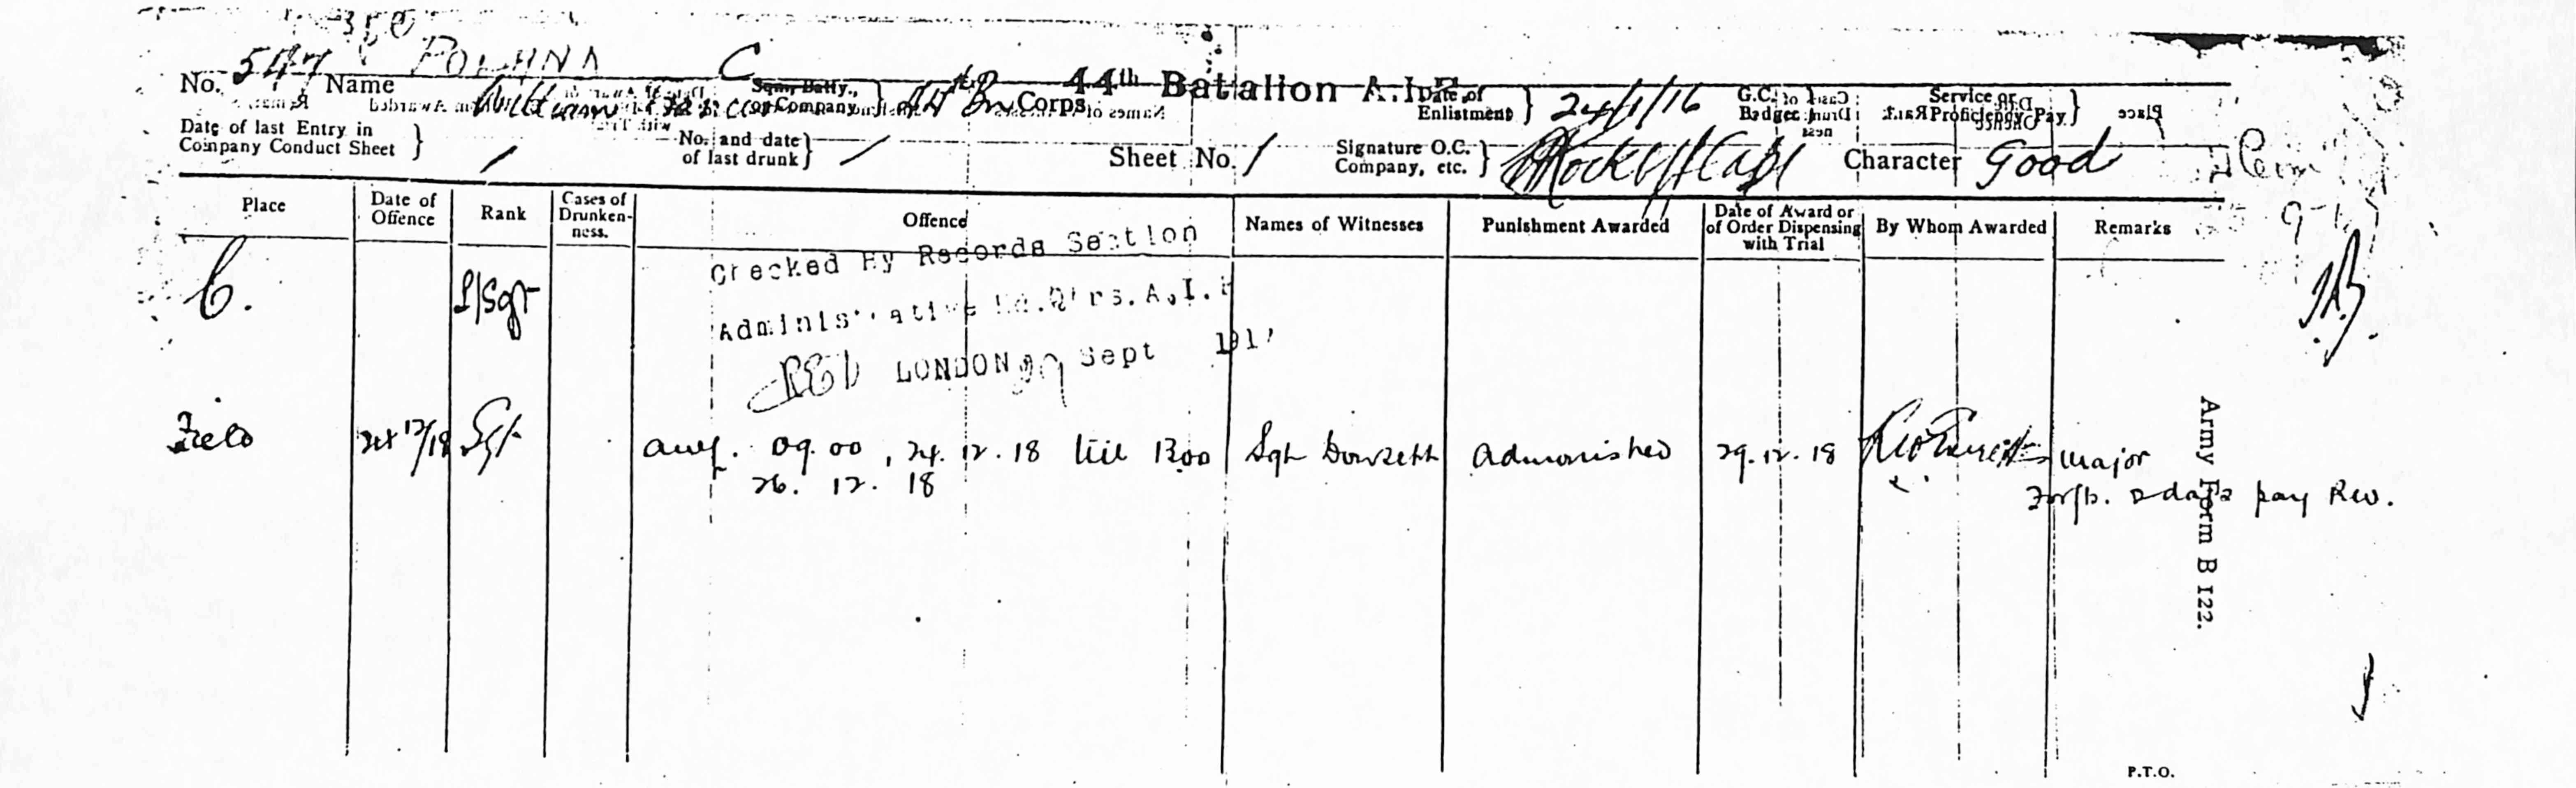 No. 547 Name POLAND C 44th Battalion A.I.F.
William Sqn., Batty., or Company 44th Bn Corps Date of Enlistment 24/1/16 G.C. Badges Service or Proficiency Pay
Date of last Entry in Company Conduct Sheet / No. and date of last drunk / Sheet No. 1 Signature O.C. Company, etc. Character Good
Place Date of Offence Rank Cases of Drunkenness. Offence Names of Witnesses Punishment Awarded Date of Award or of Order Dispensing with Trial By Whom Awarded Remarks
C. L/Sgt
Checked By Records Section
Administrative Hd.Qtrs. A.I.F
LONDON Sept 191
Field 24 12/18 Sgt awl. 09.00, 24.12.18 till 1300 Sgt admonished 29.12.18 Major
26.12.18 Forfts. 2 days pay RW.
Army Form B 122.
P.T.O.